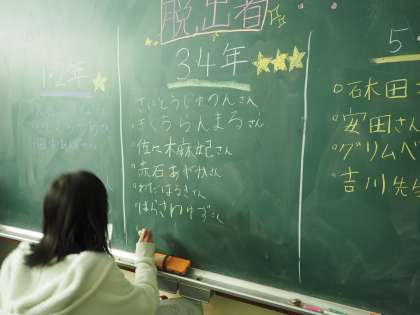 脱出者
1.2年
34年
さいとうじゅんさん
さくららんまろさん
佐々木麻妃さん
赤石あやかさん
わだはるきさん
はらさわゆずさん
5
石田さ
安田さん
グリムベ
吉川先